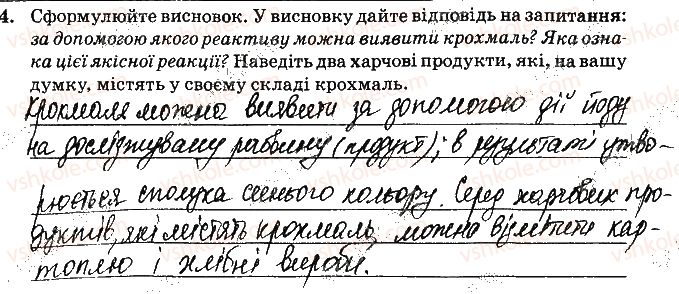 4. Сформулюйте висновок. У висновку дайте відповідь на запитання:
за допомогою якого реактиву можна виявити крохмаль? Яка озна-
ка цієї якісної реакції? Наведіть два харчові продукти, які, на вашу
думку, містять у своєму складі крохмаль.
Крохмаль можна виявити за допомогою дії йоду
на досліджувану рослину (продукт); в результаті утво-
рюється сполука синього кольору. Серед харчових про-
дуктів, які містять крохмаль, можна відмітити кар-
топлю і хлібні вироби.